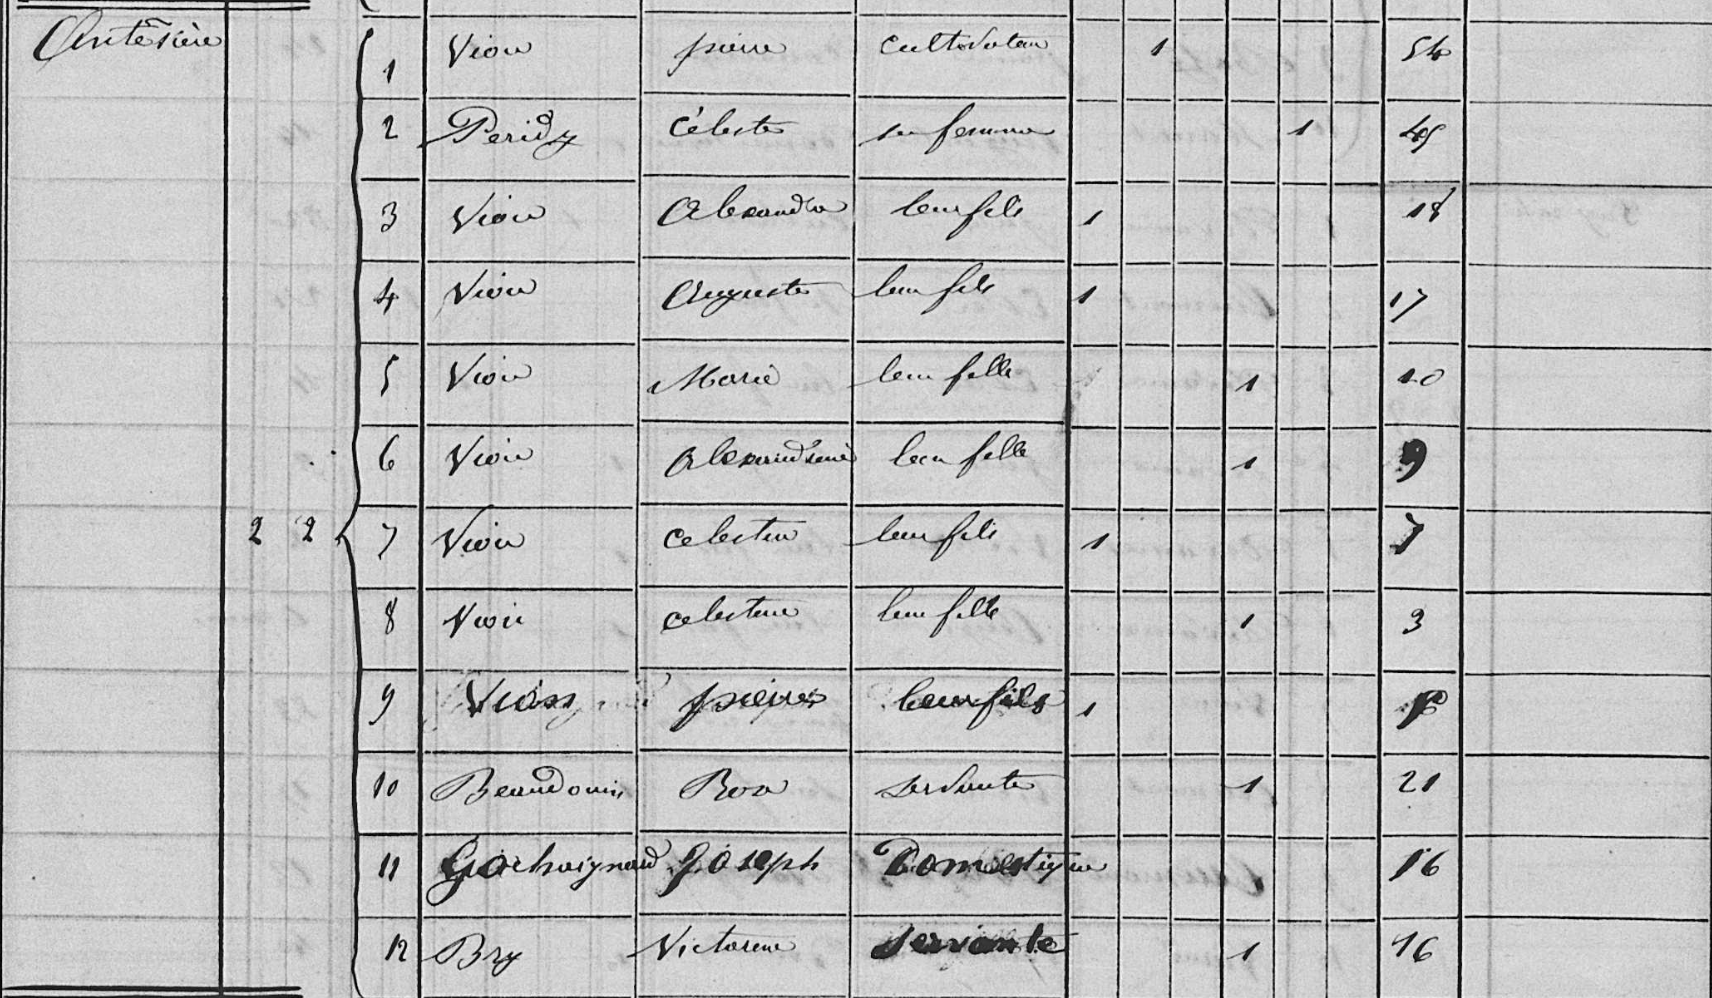 Antesière
1 Vion pierre cultivateur 1 54
2 Peridy Céleste sa femme 1 45
3 Vion Alexandre leur fils 1 18
4 Vion Auguste leur fils 1 17
5 Vion Marie leur fille 1 10
6 Vion Alexandrine leur fille 1 9
2 2 7 Vion Celestin leur fils 1 7
8 Vion Celestine leur fille 1 3
9 Vion pierre leur fils 1
10 Beaudouin Rosa servante 1 21
11 Gachaignard Joseph Domestique 16
12 Bry Victorine servante 1 16